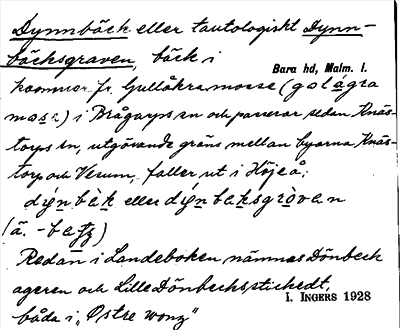 Dynnbäck eller tautologiskt Dynn-
bäcksgraven, bäck i
Bara hd, Malm. l.
kommer fr. Gullåkra mosse (golågra
mosa) i Brågarps sn och passerar sedan Knäs-
torps sn, utgörande gräns mellan byarna Knäs-
torp och Vesum, faller ut i Höjeå;
dýnbæk eller dýnbæksgròvan
(ä. -bæk)
Redan i Landeboken nämnes Dönbeck
ageren och Lille Dönbechsstichedt,
I. INGERS 1928
båda i "Østre wong"